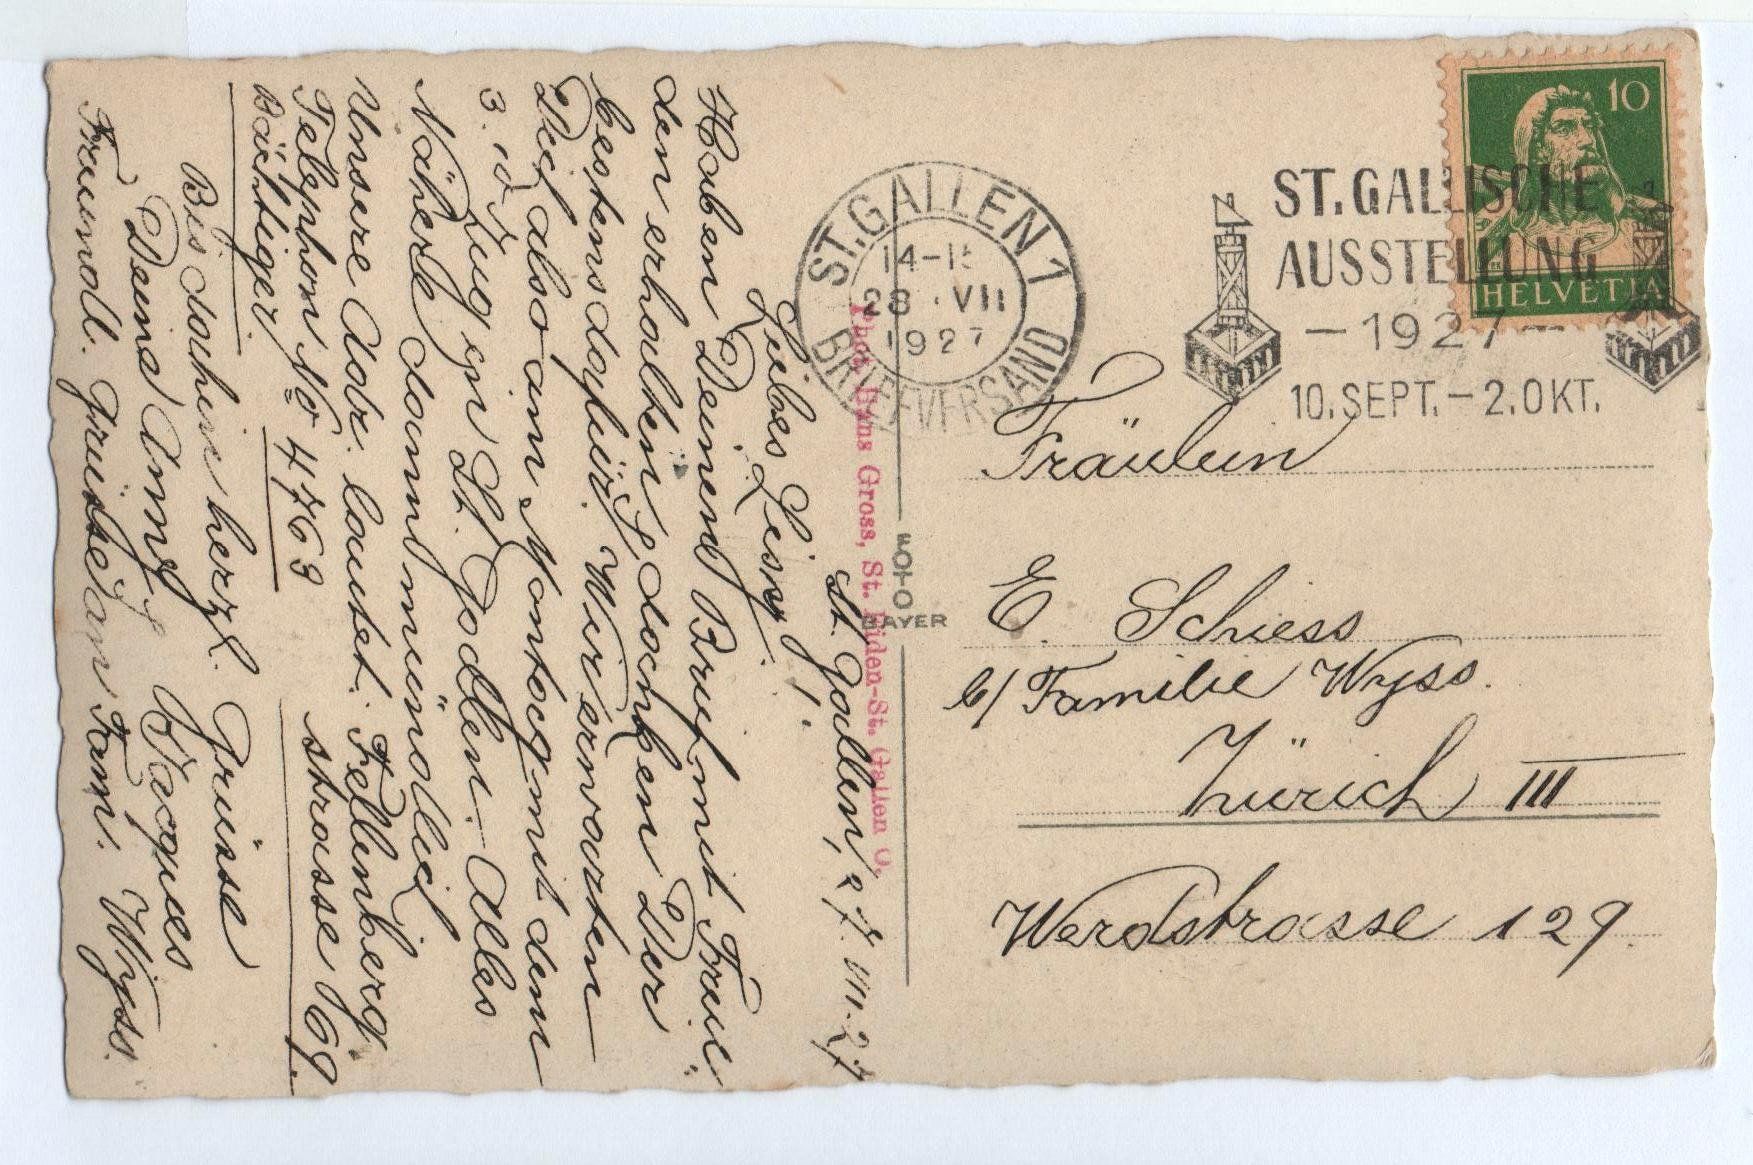 St. Gallen, 27. VII. 27
Liebes Lisny!
Haben Deinen Brief mit Freu-
den erhalten & danken Dir
bestens dafür. Wir erwarten
Dich also am Montag mit dem
3.10 Zug in St. Gallen. Alles
Nähere dann mündlich
Unsere Adr. lautet: Fellenberg
strasse 69.
Telephon No 4763
Bächtiger.
Bis dahin herzl. Grüsse
Deine Anny & Jacques
Freundl. Grüsse an Fam. Wyss.
Phot. Hans Gross, St. Fiden-St. Gallen O.
FOTO
BAYER
ST. GALLEN 1
14-15
28. VII
1927
BRIEFVERSAND
ST. GALLISCHE
AUSSTELLUNG
— 1927 —
10. SEPT. – 2. OKT.
10
HELVETIA
Fräulein
E. Schiess
b/ Familie Wyss.
Zürich III
Werdstrasse 129.